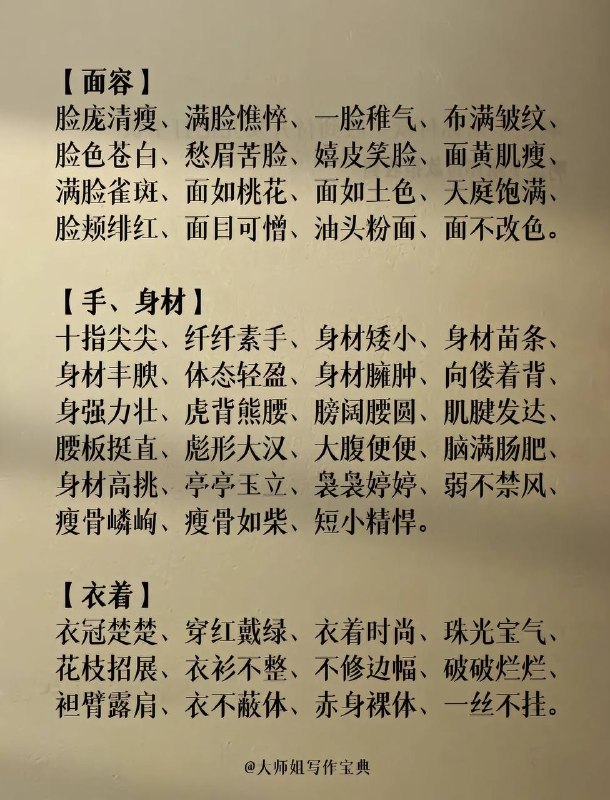 【面容】
脸庞清瘦、满脸憔悴、一脸稚气、布满皱纹、
脸色苍白、愁眉苦脸、嬉皮笑脸、面黄肌瘦、
满脸雀斑、面如桃花、面如土色、天庭饱满、
脸颊绯红、面目可憎、油头粉面、面不改色。
【手、身材】
十指尖尖、纤纤素手、身材矮小、身材苗条、
身材丰腴、体态轻盈、身材臃肿、向偻着背、
身强力壮、虎背熊腰、膀阔腰圆、肌腱发达、
腰板挺直、彪形大汉、大腹便便、脑满肠肥、
身材高挑、亭亭玉立、袅袅婷婷、弱不禁风、
瘦骨嶙峋、瘦骨如柴、短小精悍。
【衣着】
衣冠楚楚、穿红戴绿、衣着时尚、珠光宝气、
花枝招展、衣衫不整、不修边幅、破破烂烂、
袒臂露肩、衣不蔽体、赤身裸体、一丝不挂。
@大师姐写作宝典